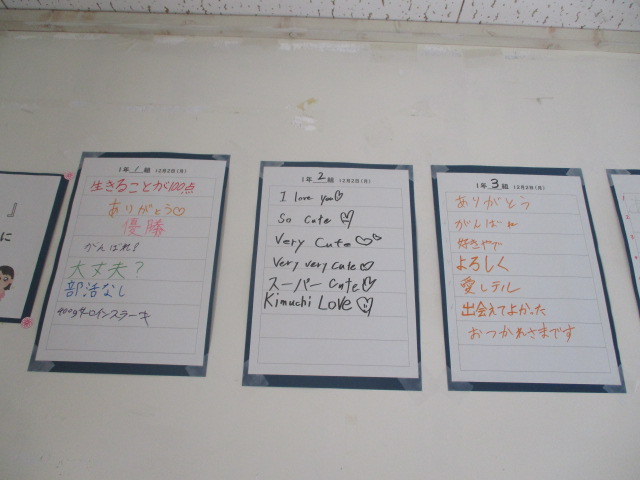 』
に
1年 1 組 12月2日(月)
生きることが100点
ありがとう♡
優勝
がんばれ!
大丈夫?
部活なし
400gサーロインステーキ
1年 2 組 12月2日(月)
I love you♡
So cute ♡
Very cute ♡♡
Very very cute♡
スーパー cute♡
Kimuchi LOVE♡
1年 3 組 12月2日(月)
ありがとう
がんばれ
好きやで
よろしく
愛しテル
出会えてよかった
おつかれさまです